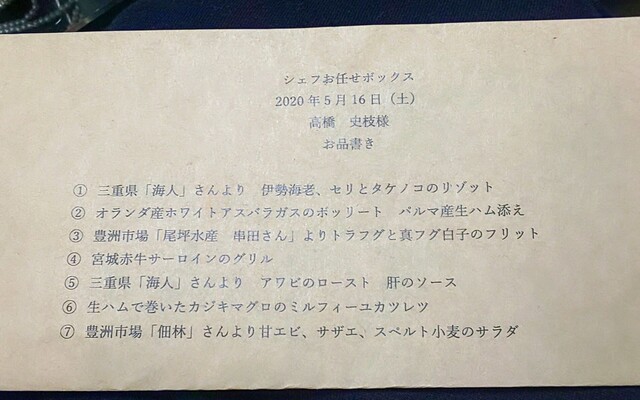 シェフお任せボックス
2020年5月16日（土）
高橋　史枝様
お品書き
① 三重県「海人」さんより　伊勢海老、セリとタケノコのリゾット
② オランダ産ホワイトアスパラガスのボッリート　パルマ産生ハム添え
③ 豊洲市場「尾坪水産　串田さん」よりトラフグと真フグ白子のフリット
④ 宮城赤牛サーロインのグリル
⑤ 三重県「海人」さんより　アワビのロースト　肝のソース
⑥ 生ハムで巻いたカジキマグロのミルフィーユカツレツ
⑦ 豊洲市場「佃林」さんより甘エビ、サザエ、スペルト小麦のサラダ